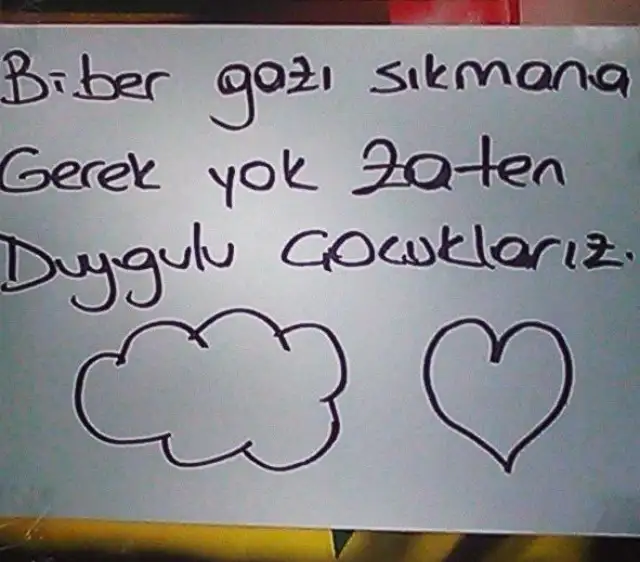 Biber gazı sıkmana
Gerek yok zaten
Duygulu Çocuklarız.